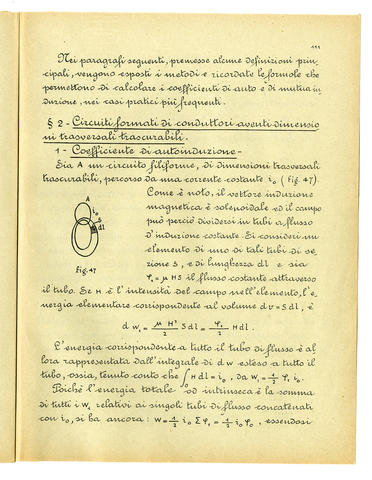 111
Nei paragrafi seguenti, premesse alcune definizioni prin-
cipali, vengono esposti i metodi e ricordate le formole che
permettono di calcolare i coefficienti di auto e di mutua in
duzione, nei casi pratici più frequenti.
§ 2 - Circuiti formati di conduttori aventi dimensio
ni trasversali trascurabili.
1 - Coefficiente di autoinduzione -
Sia A un circuito filiforme, di dimensioni trasversali
trascurabili, percorso da una corrente costante i₀ (Fig. 47).
Come è noto, il vettore induzione
magnetica è solenoidale ed il campo
può perciò dividersi in tubi a flusso
d'induzione costante. Si consideri un
elemento di uno di tali tubi di se
zione S, e di lunghezza dl e sia
φ₁ = μ HS il flusso costante attraverso
A
i₀
S
dl
Fig. 47
il tubo. Se H è l'intensità del campo nell'elemento, l'e_
nergia elementare corrispondente al volume dv = S dl, è
d W₁ = μ H² / 2 S dl = φ₁ / 2 H dl.
L'energia corrispondente a tutto il tubo di flusso è al
lora rappresentata dall'integrale di dw esteso a tutto il
tubo, ossia, tenuto conto che ∫ H dl = i₀, da W₁ = 1/2 φ₁ i₀.
Poiché l'energia totale od intrinseca è la somma
di tutti i W₁ relativi ai singoli tubi di flusso concatenati
con i₀, si ha ancora: W = 1/2 i₀ Σ φ₁ = 1/2 i₀ φ₀, essendosi